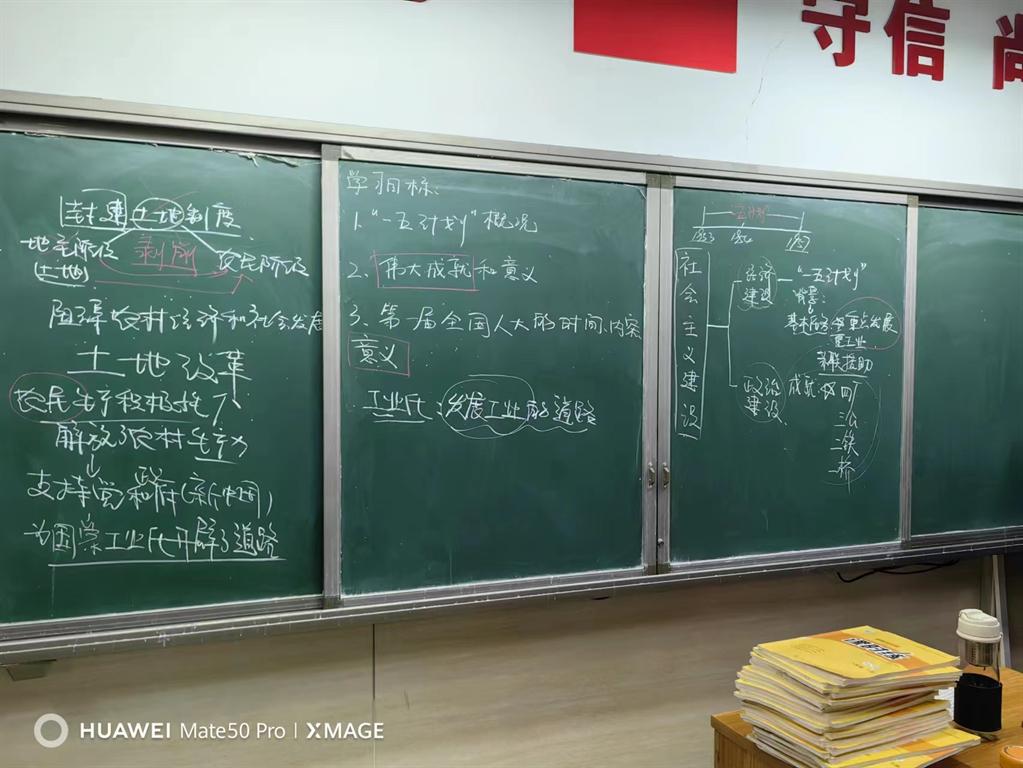 守信 尚
封建土地制度
地主阶级 剥削 农民阶级
(土地)
阻碍农村经济和社会发展
土地改革
农民生产积极性↑
解放了农村生产力
支持党和政府(新中国)
为国家工业化开辟了道路
学习目标:
1."一五计划"概况
2.伟大成就和意义
3、第一届全国人大的时间、内容
意义
工业化:发展工业的道路
一五计划
1953 1954 1957
社会主义建设
经济建设
"一五计划"
背景:
基本任务:重点发展
重工业
苏联援助
政治建设
成就:
三公
二铁
一桥
HUAWEI Mate50 Pro | XMAGE